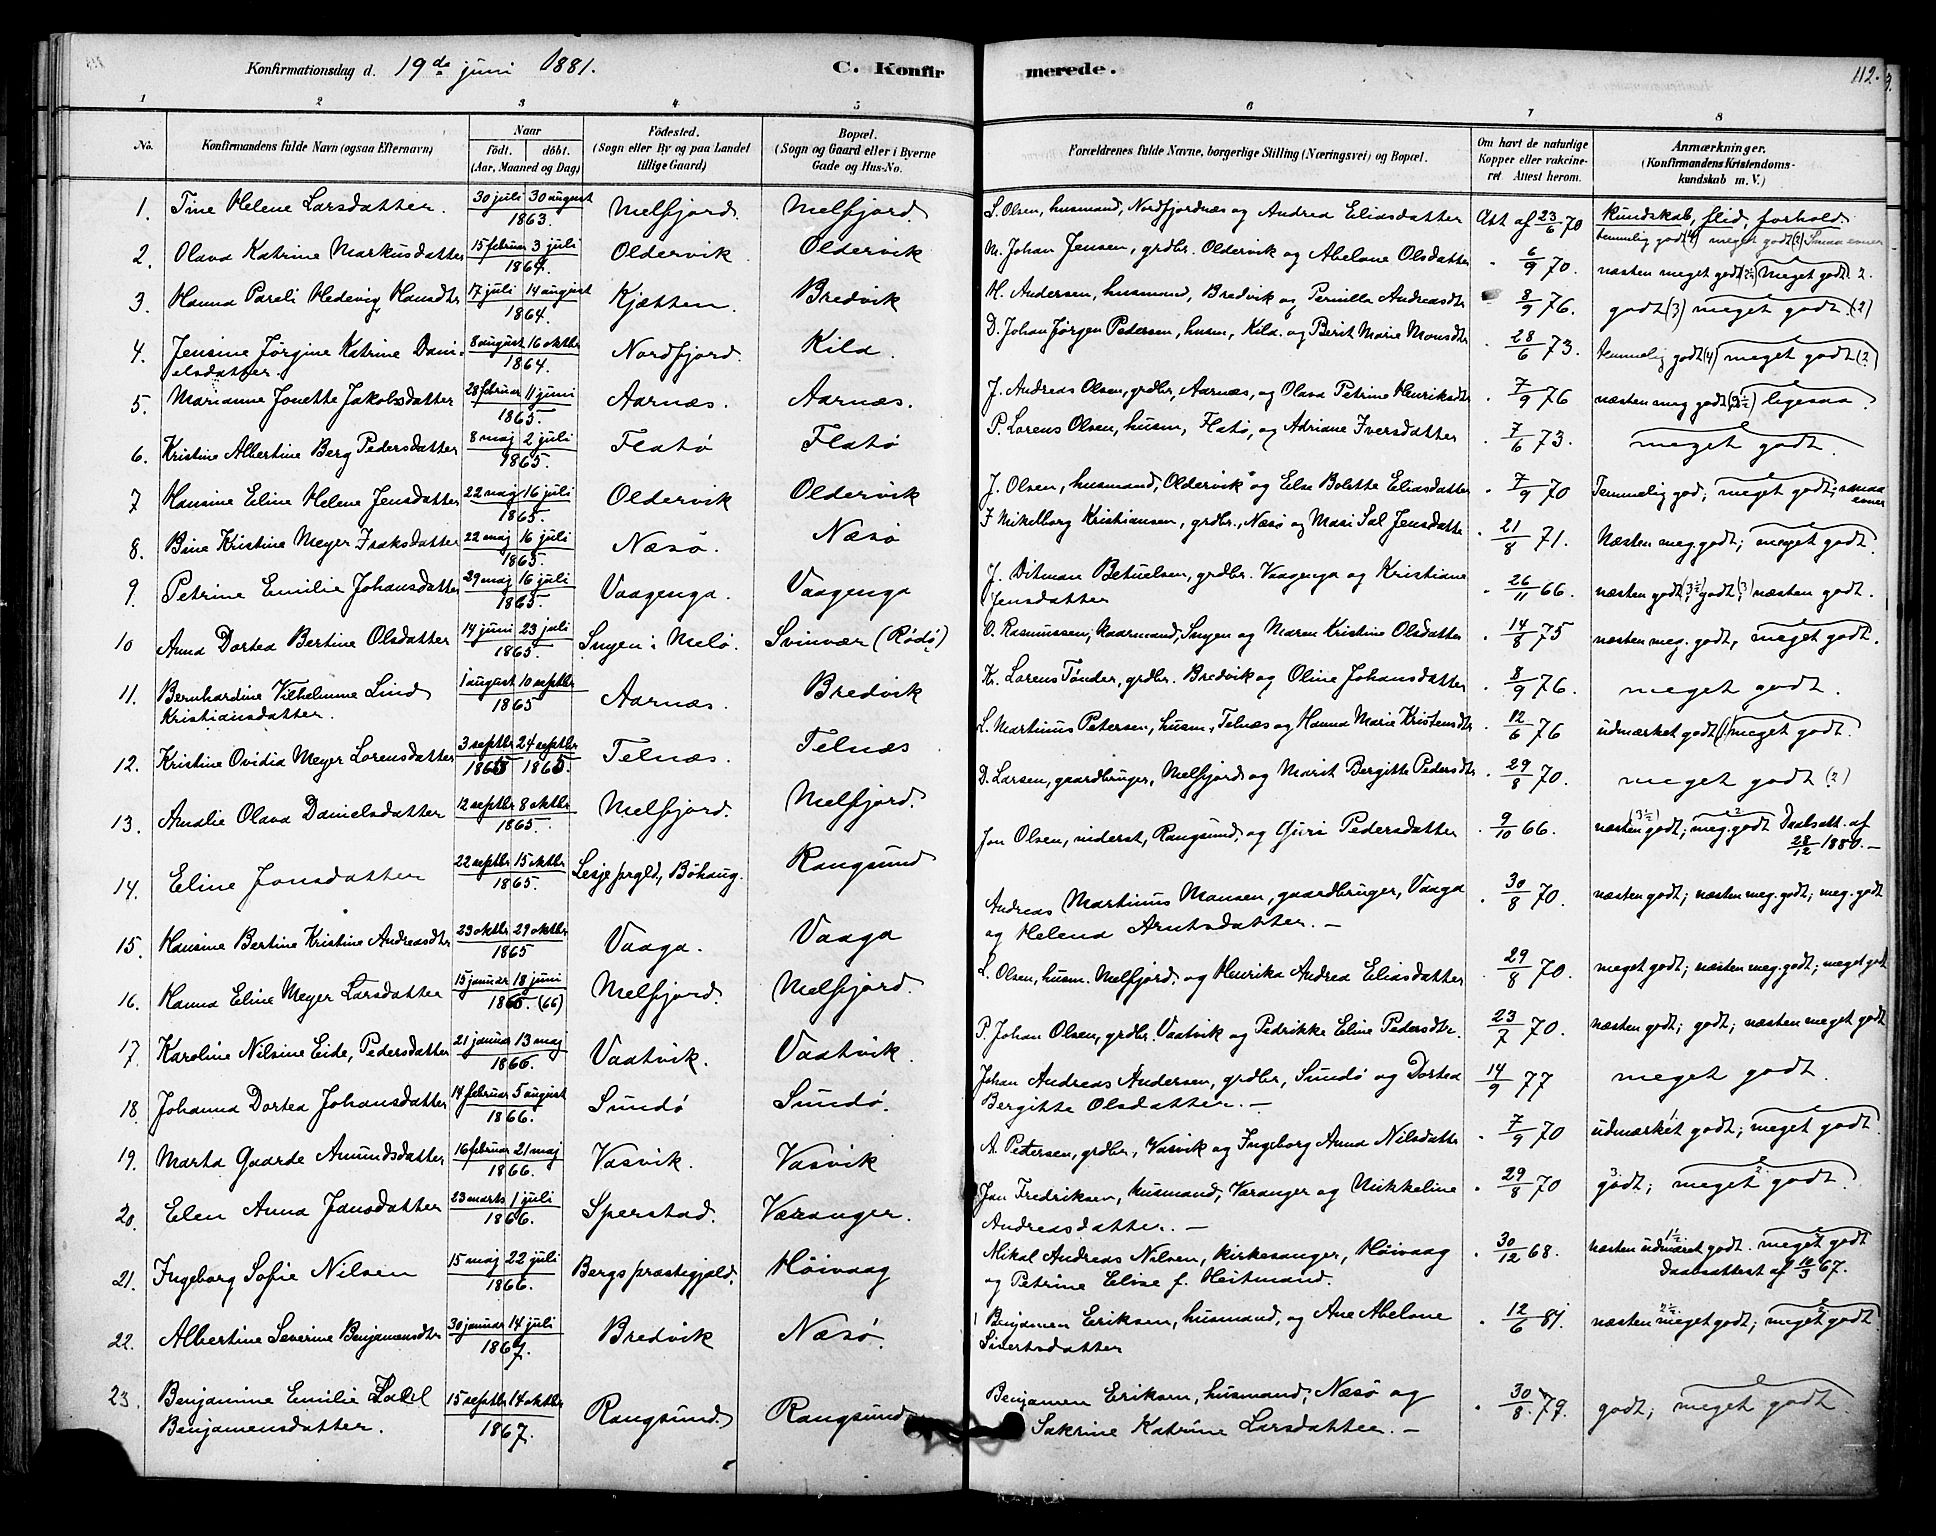 Konfirmationsdag d. 19de juni 1881. C. Konfir merede. 112.
1 2 3 4 5 6 7 8
No. Konfirmandens fulde Navn (ogsaa Efternavn) Naar födt. döbt. (Aar, Maaned og Dag) Födested. (Sogn eller By og paa Landet tillige Gaard) Bopæl. (Sogn og Gaard eller i Byerne Gade og Hus-No. Forældrenes fulde Navne, borgerlige Stilling (Næringsvei) og Bopæl. Om havt de naturlige Kopper eller vakcineret Attest herom. Anmærkninger. (Konfirmandens Kristendomskundskab m. V.)
1. Tine Helene Larsdatter. 30 juli 30 august 1863. Melfjord. Melfjord L. Olsen, husmand, Nordfjordnæs og Andrea Eliasdatter Att af 23/6 70 kundskab, flid, forhold temmelig godt (4) meget godt (2) Smaa evner
2. Olava Katrine Markusdatter 15 februar 3 juli 1864. Oldervik. Oldervik M. Johan Jensen, grdbr. Oldervik og Abelone Olsdatter " 6/9 70. næsten meget godt (2½) meget godt 2.
3. Hanna Pareli Hedevig Hansdtr 17 juli 14 august 1864. Kjætten. Bredvik H. Andersen, husmand, Bredvik og Pernilla Andreasdtr " 8/9 76. godt (3) meget godt. (2)
4. Jensine Jørgine Katrine Danielsdatter. 8 august 16 oktbr 1864. Nordfjord. Kila. D. Johan Jørgen Pedersen, husm, Kila. og Berit Marie Monsdtr " 28/6 73. temmelig godt (4) meget godt (2)
5. Marianne Jonette Jakobsdatter 28 februar 11 juni 1865. Aarnæs. Aarnæs. J. Andreas Olsen, grdbr, Aarnæs, og Olava Petrine Henriksdtr " 7/9 76 næsten meg godt (2½) ligesaa.
6. Kristine Albertine Berg Pedersdatter 8 maj 2 juli 1865. Flatø Flatø P. Lorens Olsen, husm, Flatø, og Adriane Iversdatter " 7/6 73. meget godt.
7 Hansine Eline Helene Jensdatter 22 maj 16 juli 1865. Oldervik Oldervik J. Olsen, husmand, Oldervik og Else Bolette Eliasdatter " 7/9 70 Temmelig god; meget godt; smaa evner
8. Bine Kristine Meyer Isaksdatter 22 maj 16 juli 1865. Næsø. Næsø I Mikelborg Kristiansen, grdbr., Næsø og Mari Sal Jensdatte " 21/8 71. Næsten meg. godt; meget godt.
9. Petrine Emilie Johansdatter 29 maj 16 juli 1865. Vaagenga. Vaagenga J. Ditman Betuelsen, grdbr. Vaagenga og Kristiane Jensdatter " 26/11 66. næsten godt, (3½) godt, (3) næsten godt.
10 Anna Dortea Bertine Olsdatter 14 juni 23 juli 1865. Snyen i Melø. Svinvær (Rødø) O. Rasmussen, kaarmand, Snyen og Maren Kristine Olsdatter " 14/8 75 næsten meg. godt, meget godt.
11. Bernhardine Vilhelmine Lind Kristiansdatter. 1 august 10 septbr 1865 Aarnæs. Bredvik K. Lorens Tønder, grdbr. Bredvik og Oline Johansdatter " 8/9 76. meget godt.
12. Kristine Ovidia Meyer Lorensdatter 3 septbr 24 septbr 1865 1865. Telnæs. Telnæs L. Martinus Petersen, husm, Telnæs og Hanna Marie Kristensdtr " 12/6 76 udmærket godt (1) meget godt.
13. Amalie Olava Danielsdatter 12 septbr 8 oktbr 1865. Melfjord. Melfjord. D. Larsen, gaardbruger, Melfjord og Marit Bergitte Pedersdtr " 29/8 70. meget godt (2)
14. Eline Jonsdatter 22 septbr 15 oktbr 1865. Lesje prgld, Böhaug. Rangsund Jon Olsen, inderst, Rangsund, og Guri Pedersdatter " 9/10 66. næsten (3½) godt; meg. godt 2 Daabsatt. af 28/12 1880.—
15. Hansine Bertine Kristine Andreasdtr 23 oktbr 29 oktbr 1865 Vaaga. Vaaga Andreas Martinus Monsen, gaardbruger, Vaaga og Helena Arntsdatter. — " 30/8 70. næsten godt; næsten meg. godt; meg. godt
16. Hanna Eline Meyer Larsdatter 15 januar 18 juni 1865. (66) Melfjord. Melfjord. L. Olsen, husm. Melfjord, og Henrika Andrea Eliasdatter 29/8 70. meget godt; næsten meg. godt; meget godt
17. Karoline Nilsine Eide, Pedersdatter 21 januar 13 maj 1866. Vaatvik. Vaatvik. P. Johan Olsen, grdbr. Vaatvik og Pedrikke Eline Pedersdtr. 23/7 70. næsten godt; godt; næsten meget godt
18. Johanna Dortea Johansdatter 14 februar 5 august 1866. Sundø Sundø. Johan Andreas Andersen, grdbr, Sundø og Dortea Bergitte Olsdatter. — 14/9 77 meget godt.
19. Marta Gaarde Amundsdatter 16 februar 21 maj 1866. Vasvik. Vasvik A. Petersen, grdbr, Vasvik og Ingeborg Anna Nilsdattr " 7/9 70 udmærket godt; meget godt
20. Elen Anna Jansdatter 23 marts 1 juli 1866. Sperstad. Væranger. Jan Fredriksen, husmand, Væranger og Nikkeline Andreasdatter. — " 29/8 70 3. godt; 2 meget godt.
21. Ingeborg Sofie Nilsen 15 maj 22 juli 1866. Bergs præstegjæld. Höivaag Mikal Andreas Nilsen, kirkesanger, Höivaag og Petrine Elise f. Heitmand. " 30/12 68. næsten udmæret godt. 1½ meget godt Daabsattest af 10/3 67.
22. Albertine Severine Benjamensdtr 30 januar 14 juli 1867. Bredvik Næsø. Benjamen Eriksen, husmand, og Ane Abelone Sivertsdatter " 12/6 81. næsten 2½ meget godt; 2 meget godt
23. Benjamine Emilie Benjamensdatter. 15 septbr 14 oktbr 1867. Rangsund. Rangsund Benjamen Eriksen, husmand, Næsø og Sakrine Katrine Larsdatter. — " 30/8 79. godt; meget godt.